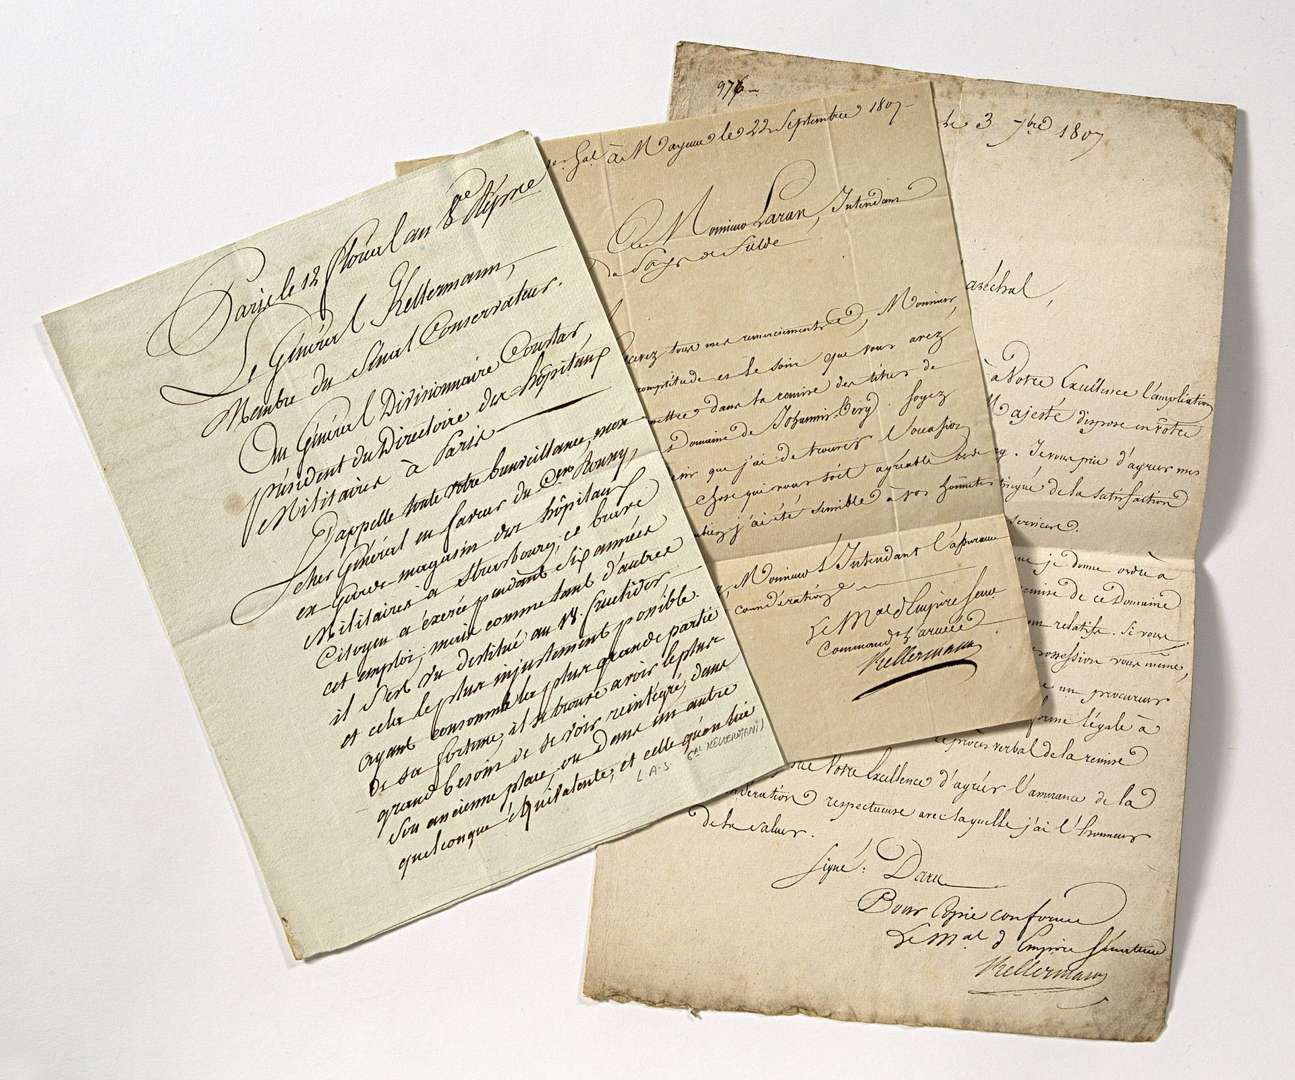 Paris le 12 Floreal an 8.e Répne
Le Général Kellermann,
Membre du Sénat Conservateur.
Au Général Divisionnaire Coustar,
président du Directoire des hôpitaux
Militaires à Paris
J'appelle toute votre bienveillance, mon
cher Général en faveur du Cen
ex Garde magasin des hôpitaux
Militaires à Strasbourg; ce brave
Citoyen a éxercé pendant six années
cet emploi; mais comme tant d'autres
il s'est vu destitué au 18. fructidor
et cela le plus injustement possible.
ayant consommé la plus grande partie
de sa fortune, il se trouve avoir le plus
grand besoin de se voir reintégré, dans
son ancienne place, ou dans un autre
quelconque équivalente; et celle qu'on lui
L.A.S. (Gal KELLERMANN)
à Mayence le 22 Septembre 1807
A Monsieur Laran, Intendant
Pays de Fulde,
tous mes remerciements, Monsieur,
promptitude et le soin que vous avez
mettre dans la remise des titres de
Domaine de Johannis-berg. soyez
que j'ai de trouver l'occasion
chose qui vous soit agréable
j'ai été sensible à vos honnetetés
Monsieur l'Intendant l'assurance
considération
Le Mal d'Empire Senr
Commandt l'armée
Kellermann
976
le 3 7bre 1807
aréchal,
à Votre Excellence l'ampliation
Majesté dispose en votre
g. Je vous prie d'agréer mes
de la satisfaction
services.
que je donne ordre à
remise de ce Domaine
relatifs. Si vous
possession vous même,
un procureur
forme légale à
procès verbal de la remise
Votre Excellence d'agréer l'assurance de la
considération respectueuse avec laquelle j'ai l'honneur
de la saluer.
signé: Daru
Pour Copie conforme
Le Mal d'Empire Sénateur
Kellermann